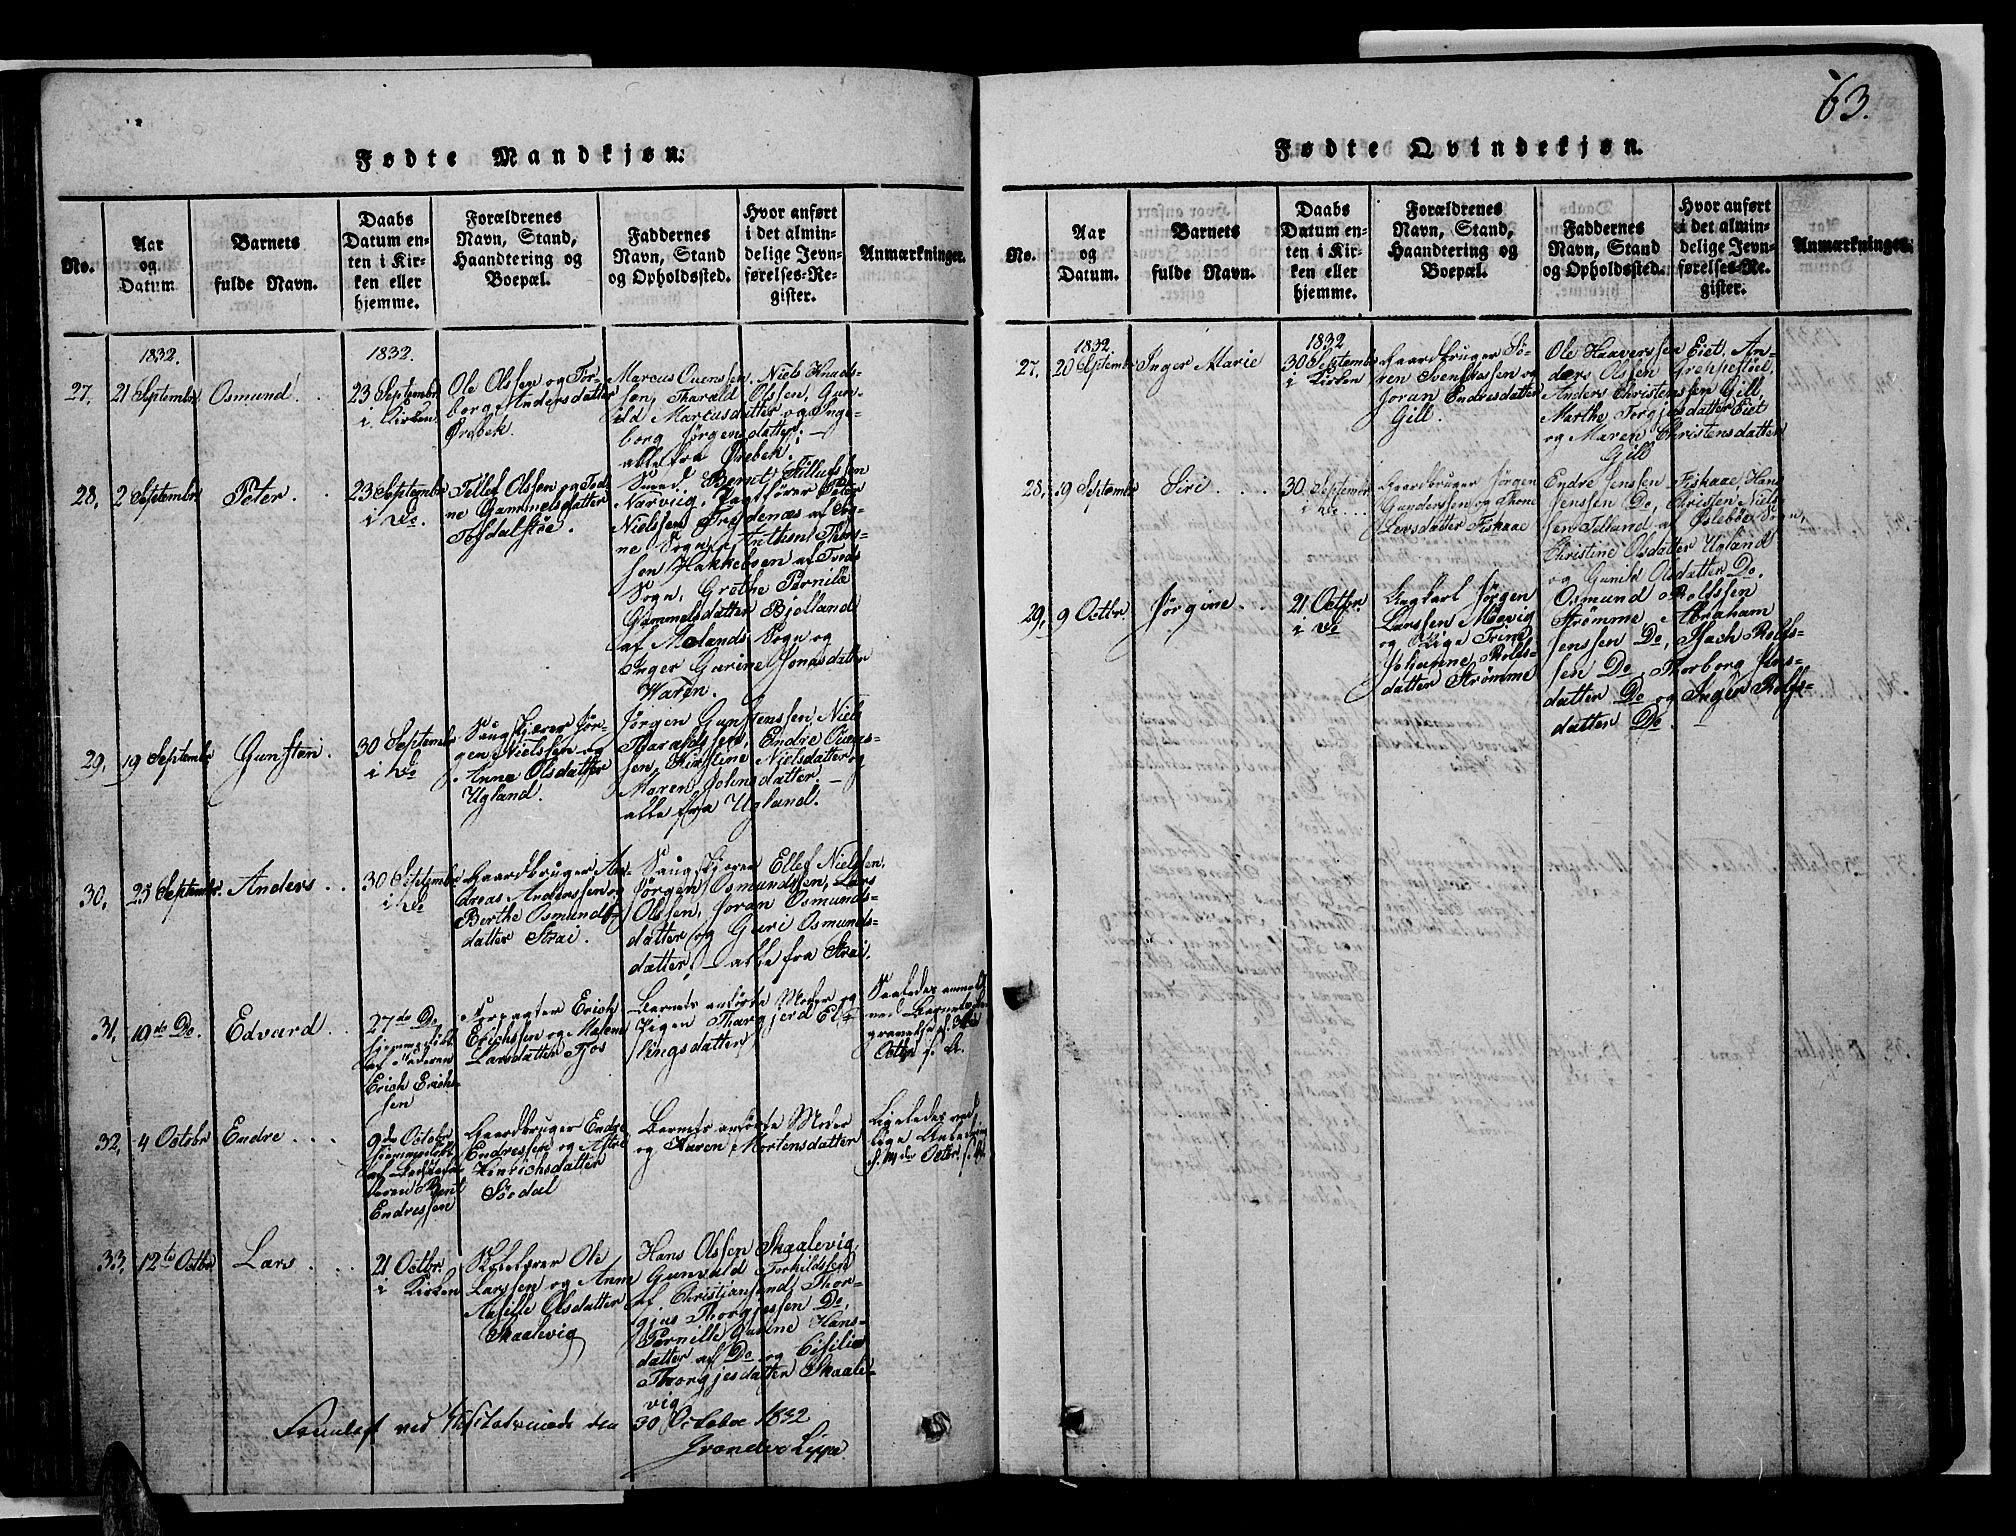 63.
Fødte Mandkjøn.
No.
Aar
og
Datum
Barnets
fulde Navn.
Daabs
Datum en-
ten i Kir-
ken eller
hjemme.
Forældrenes
Navn, Stand,
Haandtering og
Boepæl.
Faddernes
Navn, Stand
og Opholdssted.
Hvor anført
i det almin-
delige Jevn-
førelses-Re-
gister.
Anmærkninger.
1832.
1832.
27,
21 Septembr
Osmund
23 Septembr
i Kirken
Ole Olssen og Tor-
borg Andersdatter
Ørebek.
Marcus Ouenssen, Niels Knuds-
sen, Tharald Olssen, Gun-
ild Marcusdatter og Inge-
borg Jørgensdatter, –
alle fra Ørebek.
28,
2 Septembr
Peter
23 Septembr
i Do.
Tellef Olssen og
Gammelsdatter
Tofdalsøe.
Smed Bernt
Narviig,
Nielssen
Sogn, Anthon
Hakkeboen af
Sogn, Grethe Pernille
Gammelsdatter Bjolland
af Molands Sogn og
Inger Gurine Jonasdatter
Waren.
29,
19 Septembr
Gunsten
30 Septembr
i Do
Jør-
gen Nielssen og
Anne Olsdatter
Ugland.
Jørgen Gunstenssen, Niels
Tharaldssen, Endre Ouens-
sen, Kirstine Nielsdatter og
Maren Johnsdatter –
alle fra Ugland.
30,
25 Septembr.
Anders
30 Septembr
i Do
Gaardbruger An-
dreas Anderssen og
Berthe Osmunds-
datter Strai.
Ellef Nielssen,
Jørgen Osmundssen, Lars
Olssen, Joran Osmunds-
datter og Guri Osmunds-
datter, – alle fra Strai.
31,
19de Do.
Edvard
27de Do
hjemmedøbt
af Faderen
Erich Erich-
sen
Forpagter Erich
Erichssen og Malene
Larsdatter Fjos
Barnets anførte Moder og
Pigen Thargjerd El-
lingsdatter
Saaledes anmeldt
Octbr
32,
4 Octobr
Endre
9de Octobr
hjemmedøbt
af
Bent
Endressen
Gaardbruger Endre
Endressen og
Henrichsdatter
Sødal
Barnets anførte Moder
og Karen Mortensdatter
Ligeledes
Octbr.
33,
12te Octbr
Lars
21 Octbr.
i Kirken
Ole
Larssen og Anne
Olsdatter
Skaalevig
Hans Olssen Skaalevig,
Gunvald Torkildssen
af Christiansand, Thor-
gjus Thorgjussen Do,
Pernille Gurine Hans-
datter af Do og Cisilia
Thorgjesdatter Skaale-
vig
Fremlagt ved
den 30 October 1832
Fødte Qvindekjøn.
No.
Aar
og
Datum.
Barnets
fulde Navn.
Daabs
Datum en-
ten i Kir-
ken eller
hjemme.
Forældrenes
Navn, Stand,
Haandtering og
Boepæl.
Faddernes
Navn, Stand
og Opholdssted.
Hvor anført
i det almin-
delige Jevn-
førelses-Re-
gister.
Anmærkninger.
1832.
1832
27,
20 Septembr
Inger Marie
30 Septembr
i Kirken
Gaardbruger Sø-
ren Svenssen og
Joran Endresdatter
Gill.
Ole Haaverssen Eiet, An-
ders Olssen Greppestøel,
Anders Christenssen Gill,
Marthe Torgjesdatter Eiet
og Maren Christensdatter
Gill
28,
19 Septembr
Siri
30 Septembr
i Do
Gaardbruger Jørgen
Gunderssen og Thone
Larsdatter Fiskaae
Endre Jenssen Fiskaae, Hans
Jenssen Do, Christen Niels-
sen Felland af Øslebøe Sogn,
Christine Olsdatter Ugland
og Gunild Olsdatter Do.
29,
9 Octbr.
Jørgine
21 Octbr
i Do
Ungkarl Jørgen
Larssen Moevig
og Pige Trine
Johanne Rolfs-
datter Strømme
Osmund Rolfssen
Strømme, Abraham
Jenssen Do, Isach Rolfs-
sen Do, Thorborg Jens-
datter Do og Inger Rolfs-
datter Do.